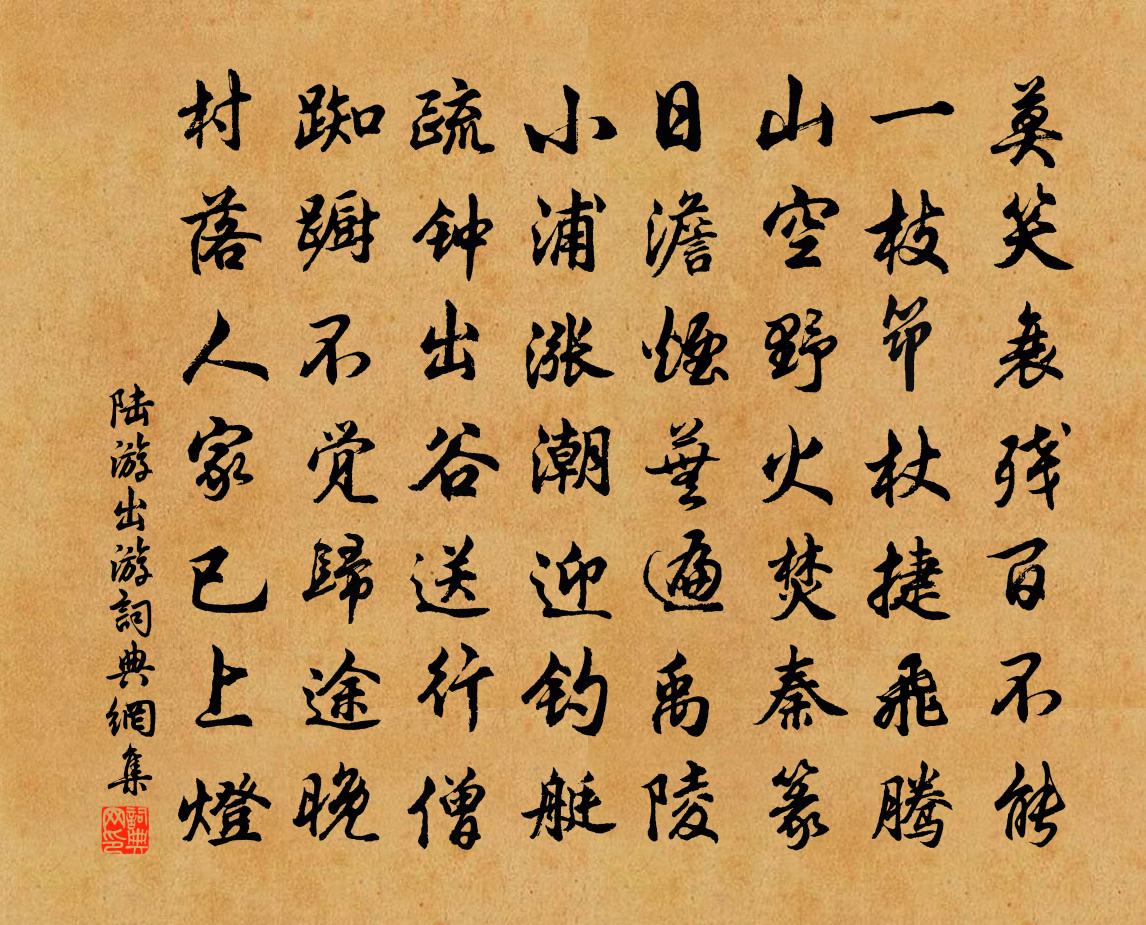 莫笑衰残百不能
一枝筇杖捷飛腾
山空野火焚秦篆
日澹煙蕪遍禹陵
小浦漲潮迎钓艇
疏钟出谷送行僧
踟蹰不觉歸途晚
村落人家已上燈
陆游出游詞典網集
詞典网印